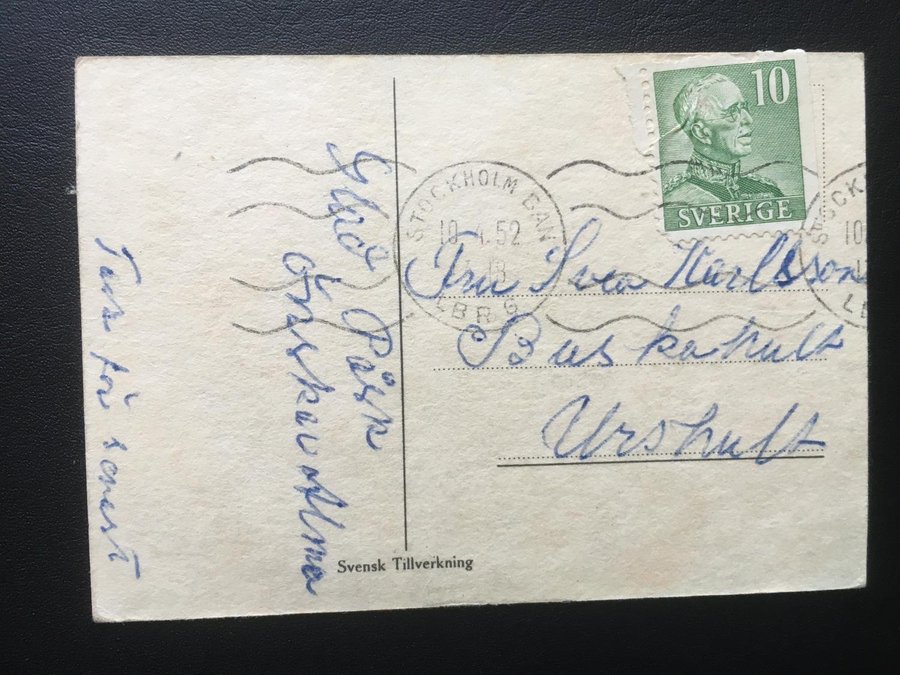 Glad Påsk
önskar Alma
Tack för senast
10
SVERIGE
STOCKHOLM BAN
10.4.52
18
LBRG
STOCK
10
LB
Fru Svea Karlsson
Buskahult
Urshult
Svensk Tillverkning